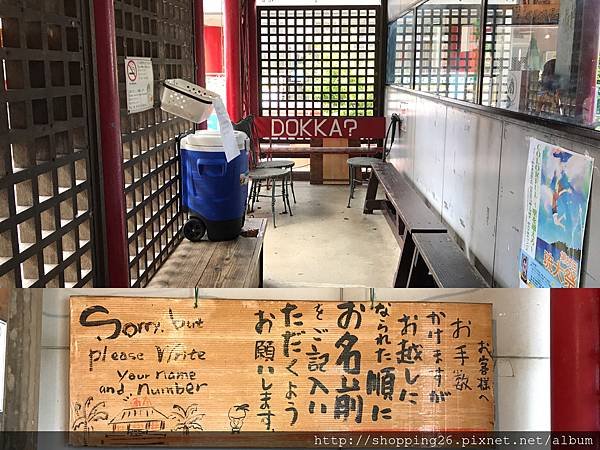 DOKKA?
Sorry, but
please write
your name
and number
お客様へ
お手数
かけますが
お越しに
なられた順に
お名前
をご記入い
ただくよう
お願いします。
http://shopping26.pixnet.net/album